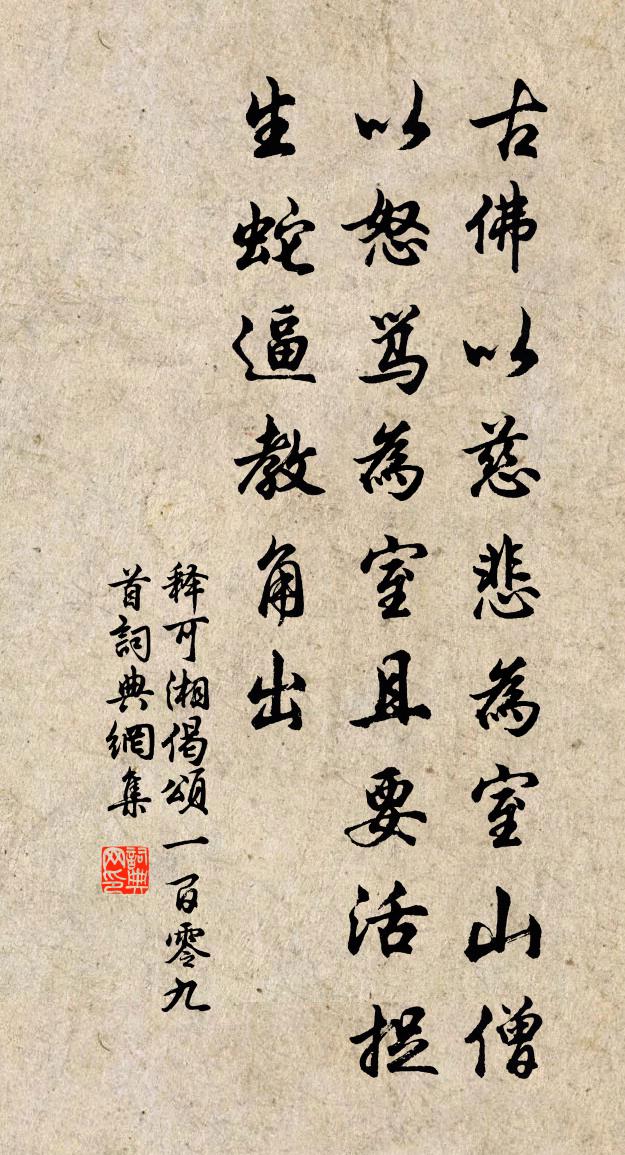 古佛以慈悲為室山僧
以怒骂為室且要活捉
生蛇逼教角出
释可湘偈頌一百零九
首詞典網集
詞典网印